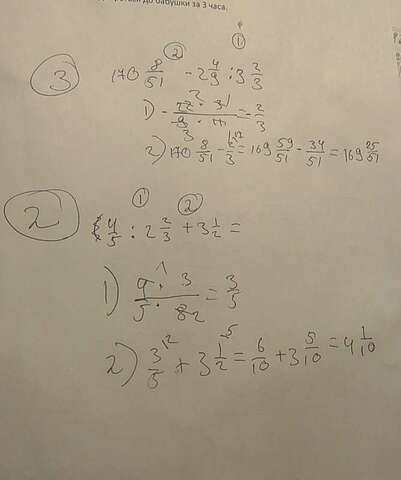 до бабушки за 3 часа.
② ①
3 170 8/51 - 2 4/9 : 3 2/3
1) - 22 · 3 / 9 · 11 = 2/3
2) 170 8/51 - 2/3 = 169 59/51 - 34/51 = 169 25/51
① ②
2 4/5 : 2 2/3 + 3 1/2 =
1) 9 · 3 / 5 · 8 = 3/5
2) 3/5 + 3 1/2 = 6/10 + 3 5/10 = 4 1/10